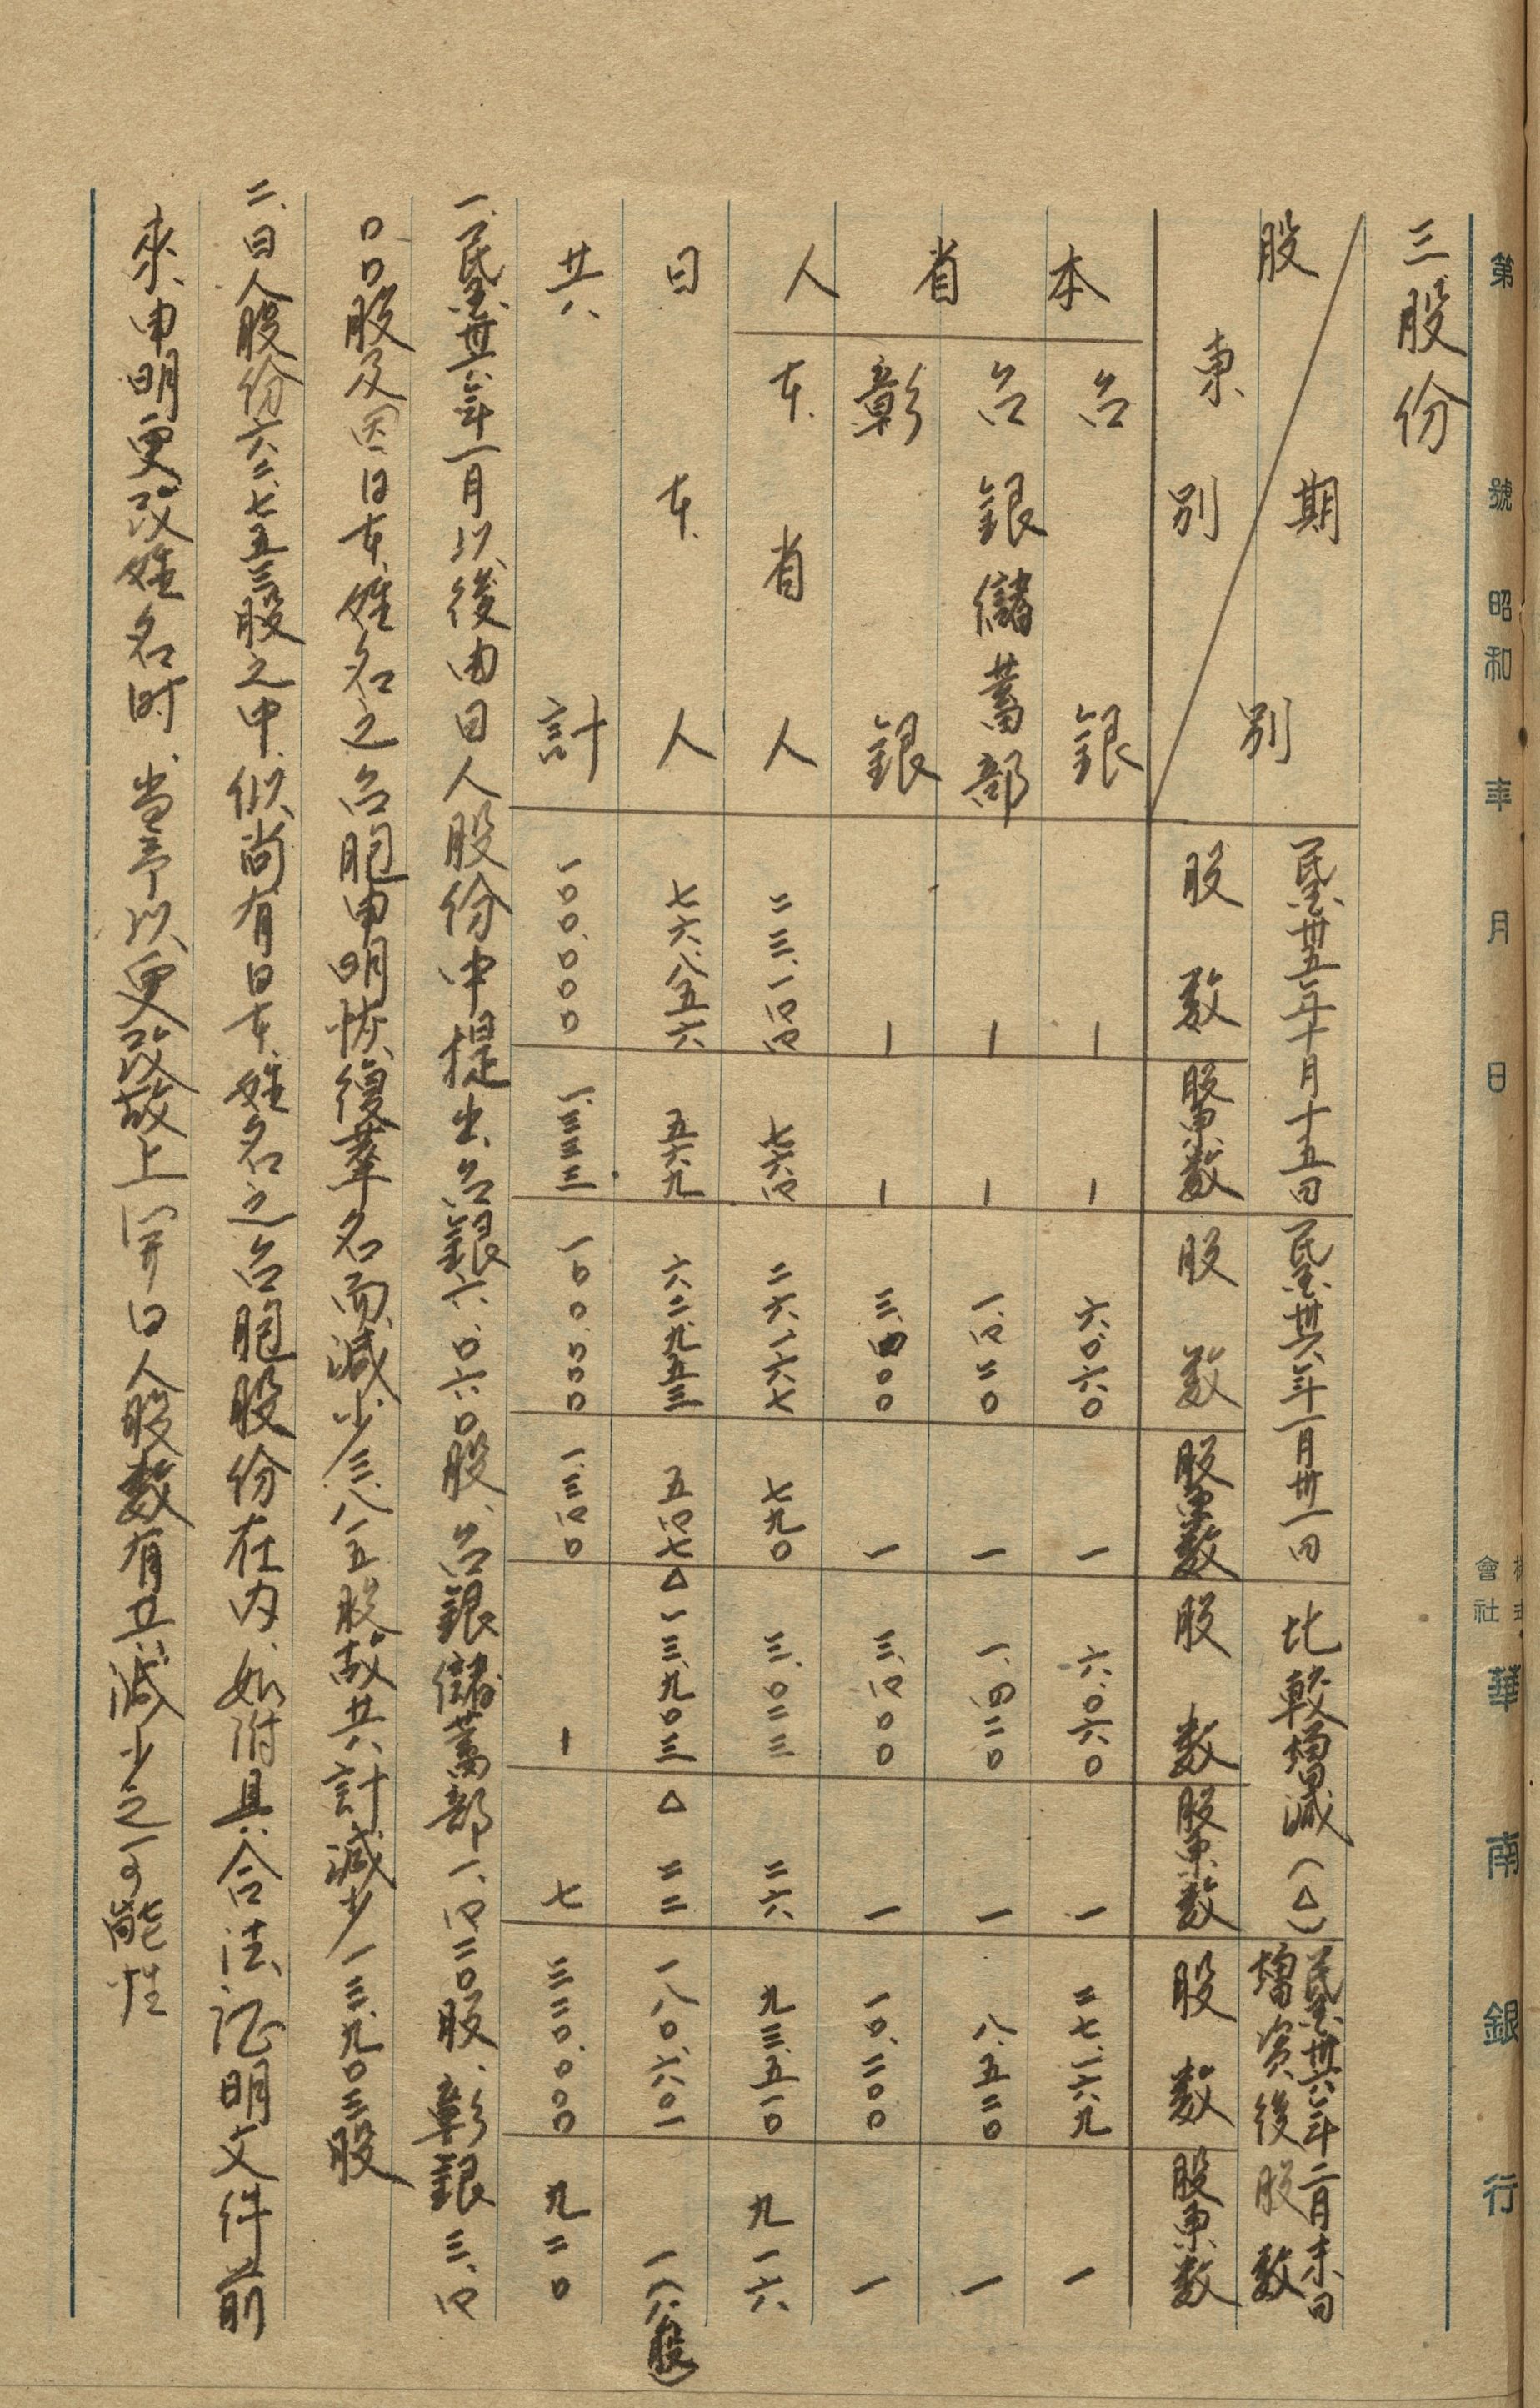 第 號 昭和 年 月 日 株式會社 華南銀行
三、股份
期別 民國卅五年十月十五日 民國卅六年一月卅一日 比較增減(△) 民國卅六年二月末日增資後股數
股東別 股數 股東數 股數 股東數 股數 股東數 股數 股東數
本省人 台銀 — — 六、〇六〇 一 六、〇六〇 一 二七、一六九 一
台銀儲蓄部 — — 一、四二〇 一 一、四二〇 一 八、五二〇 一
彰銀 — — 三、四〇〇 一 三、四〇〇 一 一〇、二〇〇 一
本省人 二三、一四四 七六四 二六、一六七 七九〇 三、〇二三 二六 九三、五一〇 九一六
日本人 七六、八五六 五六九 六二、九五三 五四七 △一三、九〇三 △二二 一八〇、六〇一 一(八股)
共計 一〇〇、〇〇〇 一、三三三 一〇〇、〇〇〇 一、三四〇 — 七 三二〇、〇〇〇 九二〇
一、民國卅六年一月以後由日人股份中提出台銀六、〇六〇股、台銀儲蓄部一、四二〇股、彰銀三、四
〇〇股及因日本姓名之台胞申明恢復華名而減少三、八五股故共計減少一三、九〇三股
二、日人股份六二、七五三股之中、似尚有日本姓名之台胞股份在内、如附具合法証明文件前
來申明更改姓名时、当予以更改故上開日人股數有其減少之可能性